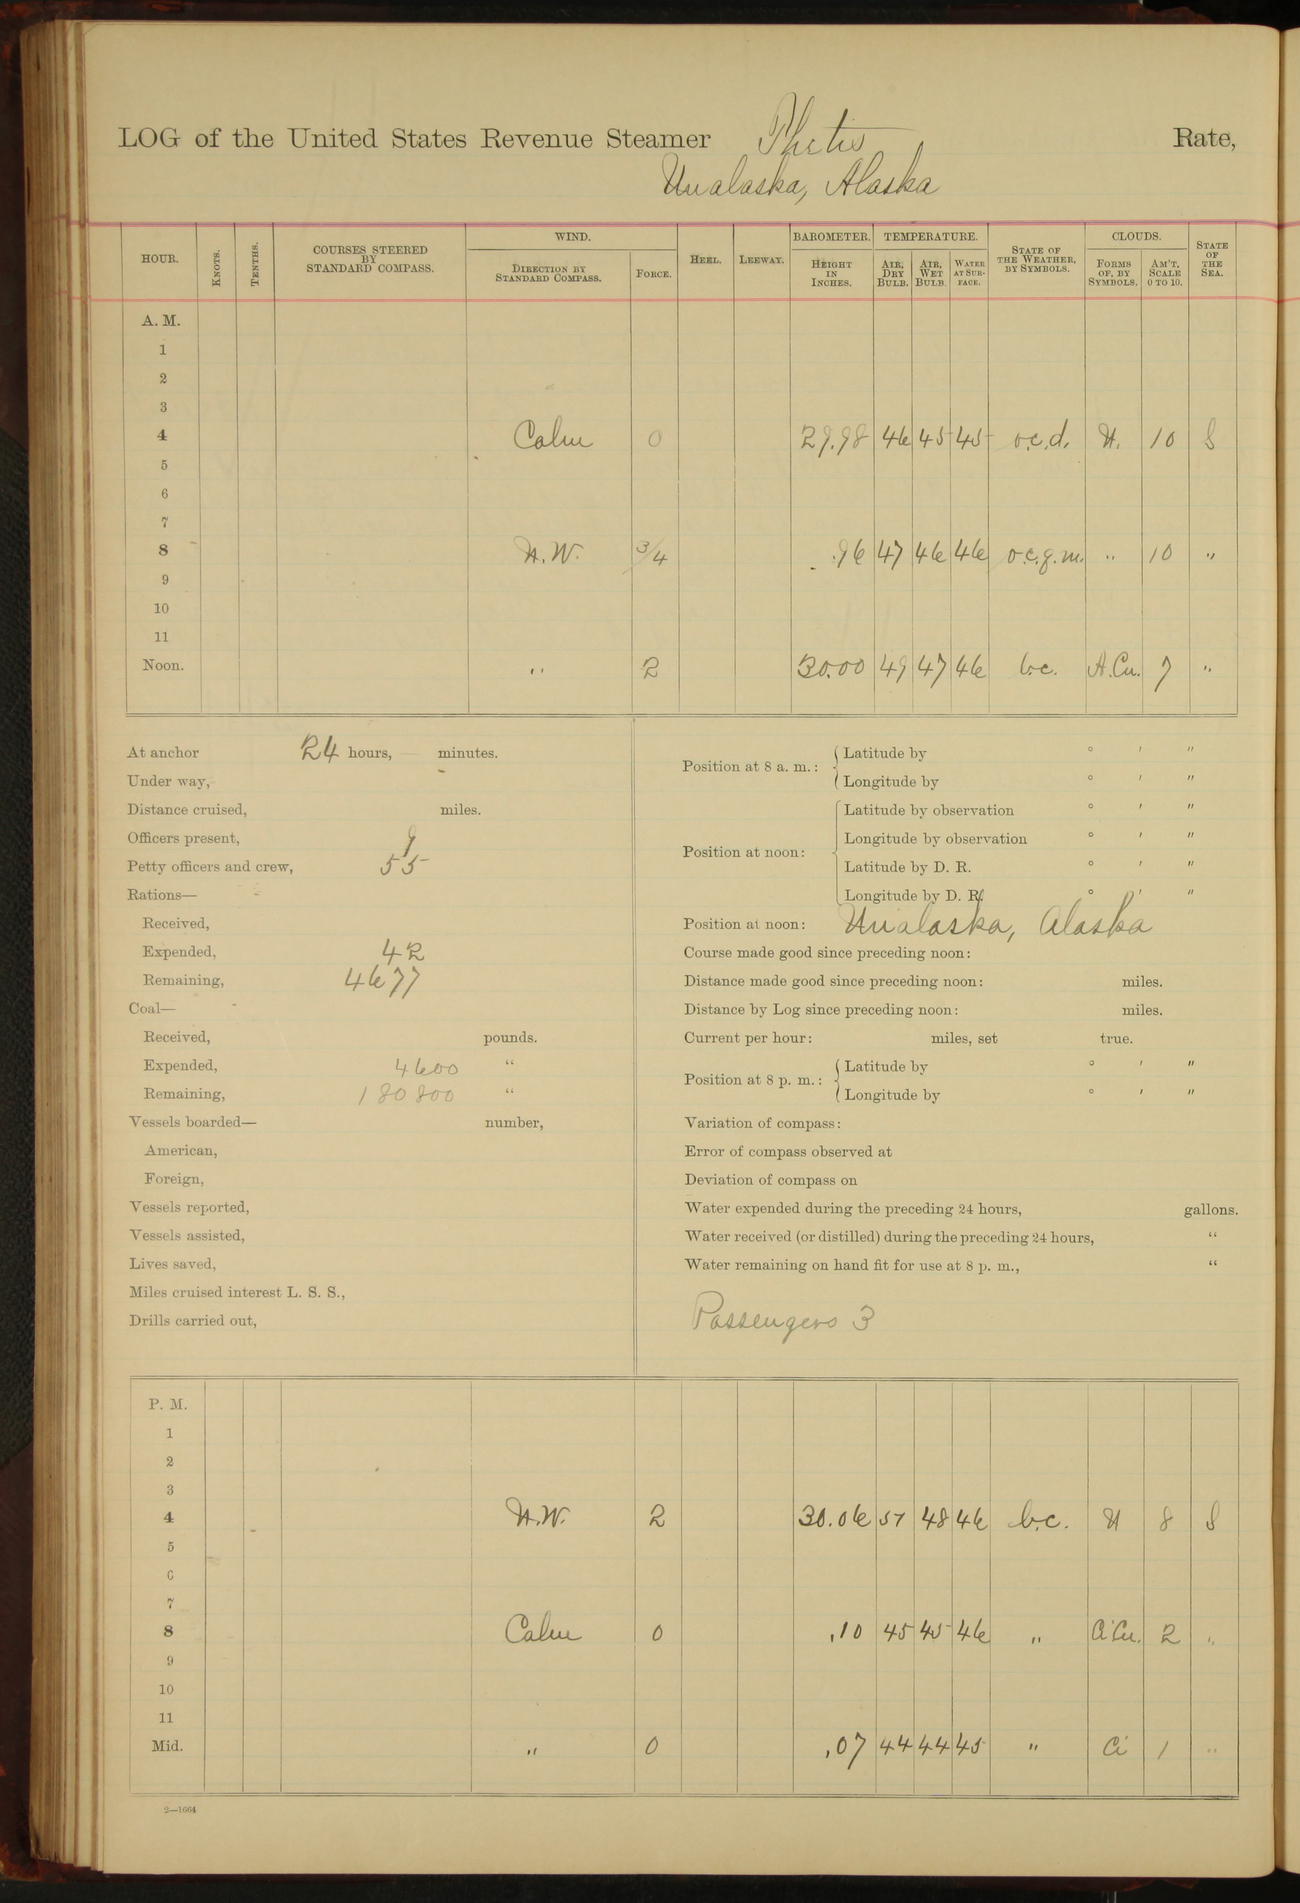 LOG of the United States Revenue Steamer Thetis Rate,
Unalaska, Alaska
HOUR. KNOTS. TENTHS. COURSES STEERED BY STANDARD COMPASS. WIND. DIRECTION BY STANDARD COMPASS. FORCE. HEEL. LEEWAY. BAROMETER. HEIGHT IN INCHES. TEMPERATURE. AIR, DRY BULB. AIR, WET BULB. WATER AT SURFACE. STATE OF THE WEATHER, BY SYMBOLS. CLOUDS. FORMS OF, BY SYMBOLS. AM'T, SCALE 0 TO 10. STATE OF THE SEA.
A. M.
1
2
3
4 Calm 0 29.98 46 45 45 o.c.d. N. 10 S
5
6
7
8 N.W. 3/4 .96 47 46 46 o.c.g.m. " 10 "
9
10
11
Noon. " 2 30.00 49 47 46 b.c. A.Cu. 7 "
At anchor 24 hours, — minutes.
Under way,
Distance cruised, miles.
Officers present, 9
Petty officers and crew, 55
Rations—
Received,
Expended, 42
Remaining, 4677
Coal—
Received, pounds.
Expended, 4600 "
Remaining, 180800 "
Vessels boarded— number,
American,
Foreign,
Vessels reported,
Vessels assisted,
Lives saved,
Miles cruised interest L. S. S.,
Drills carried out,
Position at 8 a. m.: Latitude by ° ′ ″
Longitude by ° ′ ″
Position at noon: Latitude by observation ° ′ ″
Longitude by observation ° ′ ″
Latitude by D. R. ° ′ ″
Longitude by D. R. ° ′ ″
Position at noon: Unalaska, Alaska
Course made good since preceding noon:
Distance made good since preceding noon: miles.
Distance by Log since preceding noon: miles.
Current per hour: miles, set true.
Position at 8 p. m.: Latitude by ° ′ ″
Longitude by ° ′ ″
Variation of compass:
Error of compass observed at
Deviation of compass on
Water expended during the preceding 24 hours, gallons.
Water received (or distilled) during the preceding 24 hours, "
Water remaining on hand fit for use at 8 p. m., "
Passengers 3
P. M.
1
2
3
4 N.W. 2 30.06 51 48 46 b.c. N 8 S
5
6
7
8 Calm 0 .10 45 45 46 " Ci Cu. 2 "
9
10
11
Mid. " 0 .07 44 44 45 " Ci 1 "
2—1664